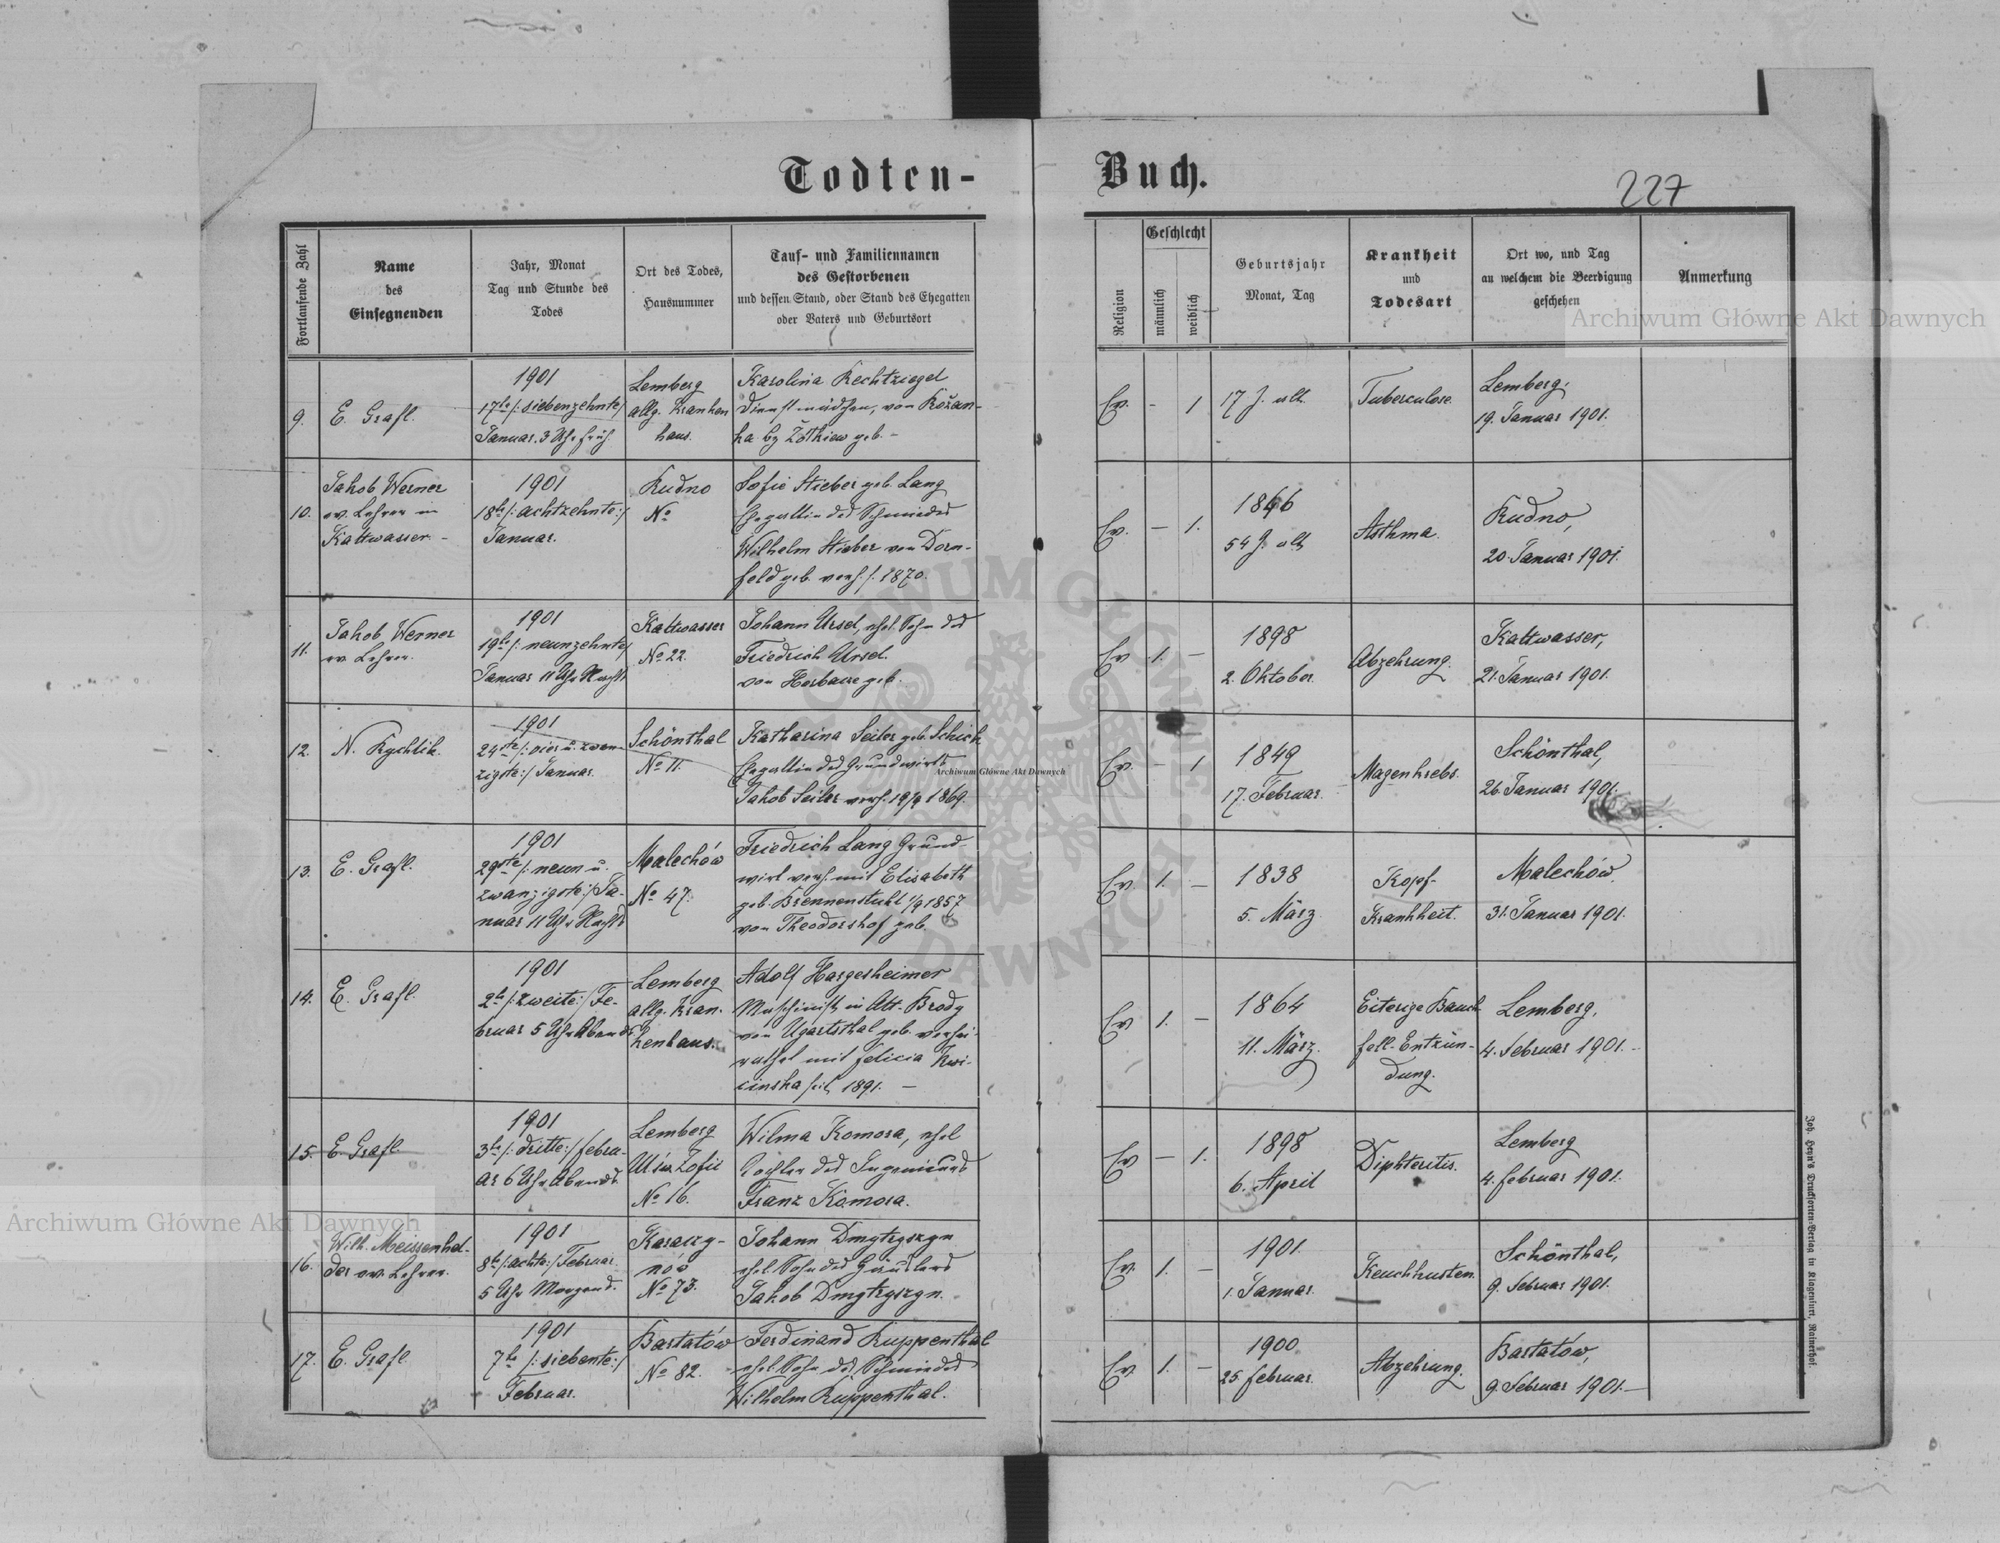 Todten-
Buch.
227
Fortlaufende Zahl
Name
des
Einsegnenden
Jahr, Monat
Tag und Stunde des
Todes
Ort des Todes,
Hausnummer
Tauf- und Familiennamen
des Gestorbenen
und dessen Stand, oder Stand des Ehegatten
oder Vaters und Geburtsort
Religion
Geschlecht
männlich
weiblich
Geburtsjahr
Monat, Tag
Krankheit
und
Todesart
Ort wo, und Tag
an welchem die Beerdigung
geschehen
Anmerkung
9.
E. Grafl.
1901
17te /: siebenzehnte/
Januar. 3 Uhr früh
Lemberg
allg. Kranken
haus.
Karolina Rechtziegel
Dienstmädchen, von
geb. -
Ev.
-
1
17 J. alt
Tuberculose
Lemberg,
19. Januar 1901.
10.
Jakob Werner
ev. Lehrer in
Kaltwasser. -
1901
18te /: achtzehnte:/
Januar.
Rudno
No
Sofie Stieber geb. Lang
Ehegattin des Schmiedes
Wilhelm Stieber von Dorn-
feld geb. verh. /. 1870.
Ev.
-
1.
1846
54 J. alt
Asthma.
Rudno,
20. Januar 1901.
11.
Jakob Werner
ev. Lehrer.
1901
19te /: neunzehnte/
Januar 11 Uhr Nachts
Kaltwasser
No 22.
Johann Ursel, ehel. Sohn des
Friedrich Ursel.
von geb.
Ev
1.
-
1898
2. Oktober.
Abzehrung.
Kaltwasser,
21. Januar 1901.
12.
N. Rychlik.
1901
24ste /: vier u. zwan-
zigste:/ Januar.
Schönthal
No 11.
Katharina Seiler geb. Schick
Ehegattin des Grundwirts
Jakob Seiler verh. 1869.
Ev.
-
1.
1849
17. Februar.
Magenkrebs.
Schönthal,
26. Januar 1901.
13.
E. Grafl.
1901
29ste /: neun u.
zwanzigste:/ Ja-
nuar 11 Uhr Nachts
Malechów
No 47.
Friedrich Lang Grund-
wirt verh. mit Elisabeth
geb. Brennenstuhl 1/9 1857
von Theodorshof geb.
Ev.
1.
-
1838
5. März
Kopf-
Krankheit.
Malechów,
31. Januar 1901.
14.
E. Grafl.
1901
2te /: zweite:/ Fe-
bruar 5 Uhr Abends
Lemberg
allg. Kran-
kenhaus.
Adolf Hargesheimer
Maschinist in Alt-Brody
von Ugartsthal geb. verhei-
rathet mit Felicia Kwi-
cinska seit 1891. -
Ev
1.
-
1864
11. März.
Eiterige Bauch
fell-Entzün-
dung.
Lemberg,
4. Februar 1901. -
15.
E. Grafl.
1901
3te /: dritte:/ Febru-
ar 6 Uhr Abends.
Lemberg
Zofii
No 16.
Wilma Komora, ehel
Tochter des Ingenieurs
Franz Komora.
Ev
-
1.
1898
6. April
Diphteritis.
Lemberg
4. Februar 1901.
16.
Wilh. Meissenhel-
der ev. Lehrer.
1901
8te /: achte:/ Februar.
5 Uhr Morgens.
Karaczy-
nów
No 73.
Johann Dmytryszyn
ehel. Sohn des Häuslers
Jakob Dmytryszyn.
Ev.
1.
-
1901.
1. Januar.
Keuchhusten.
Schönthal,
9. Februar 1901.
17.
E. Grafl
1901
7te /: siebente:/
Februar.
Bartatów
No 82.
Ferdinand Ruppenthal
ehel. Sohn des Schmiedes
Wilhelm Ruppenthal.
Ev.
1.
-
1900
25. Februar.
Abzehrung.
Bartatów,
9. Februar 1901. -
Joh. Heyn's Drucksorten-Verlag in Klagenfurt, Rainerhof.
Archiwum Główne Akt Dawnych
Archiwum Główne Akt Dawnych
Archiwum Główne Akt Dawnych
ARCHIWUM GŁÓWNE
DAWNYCH